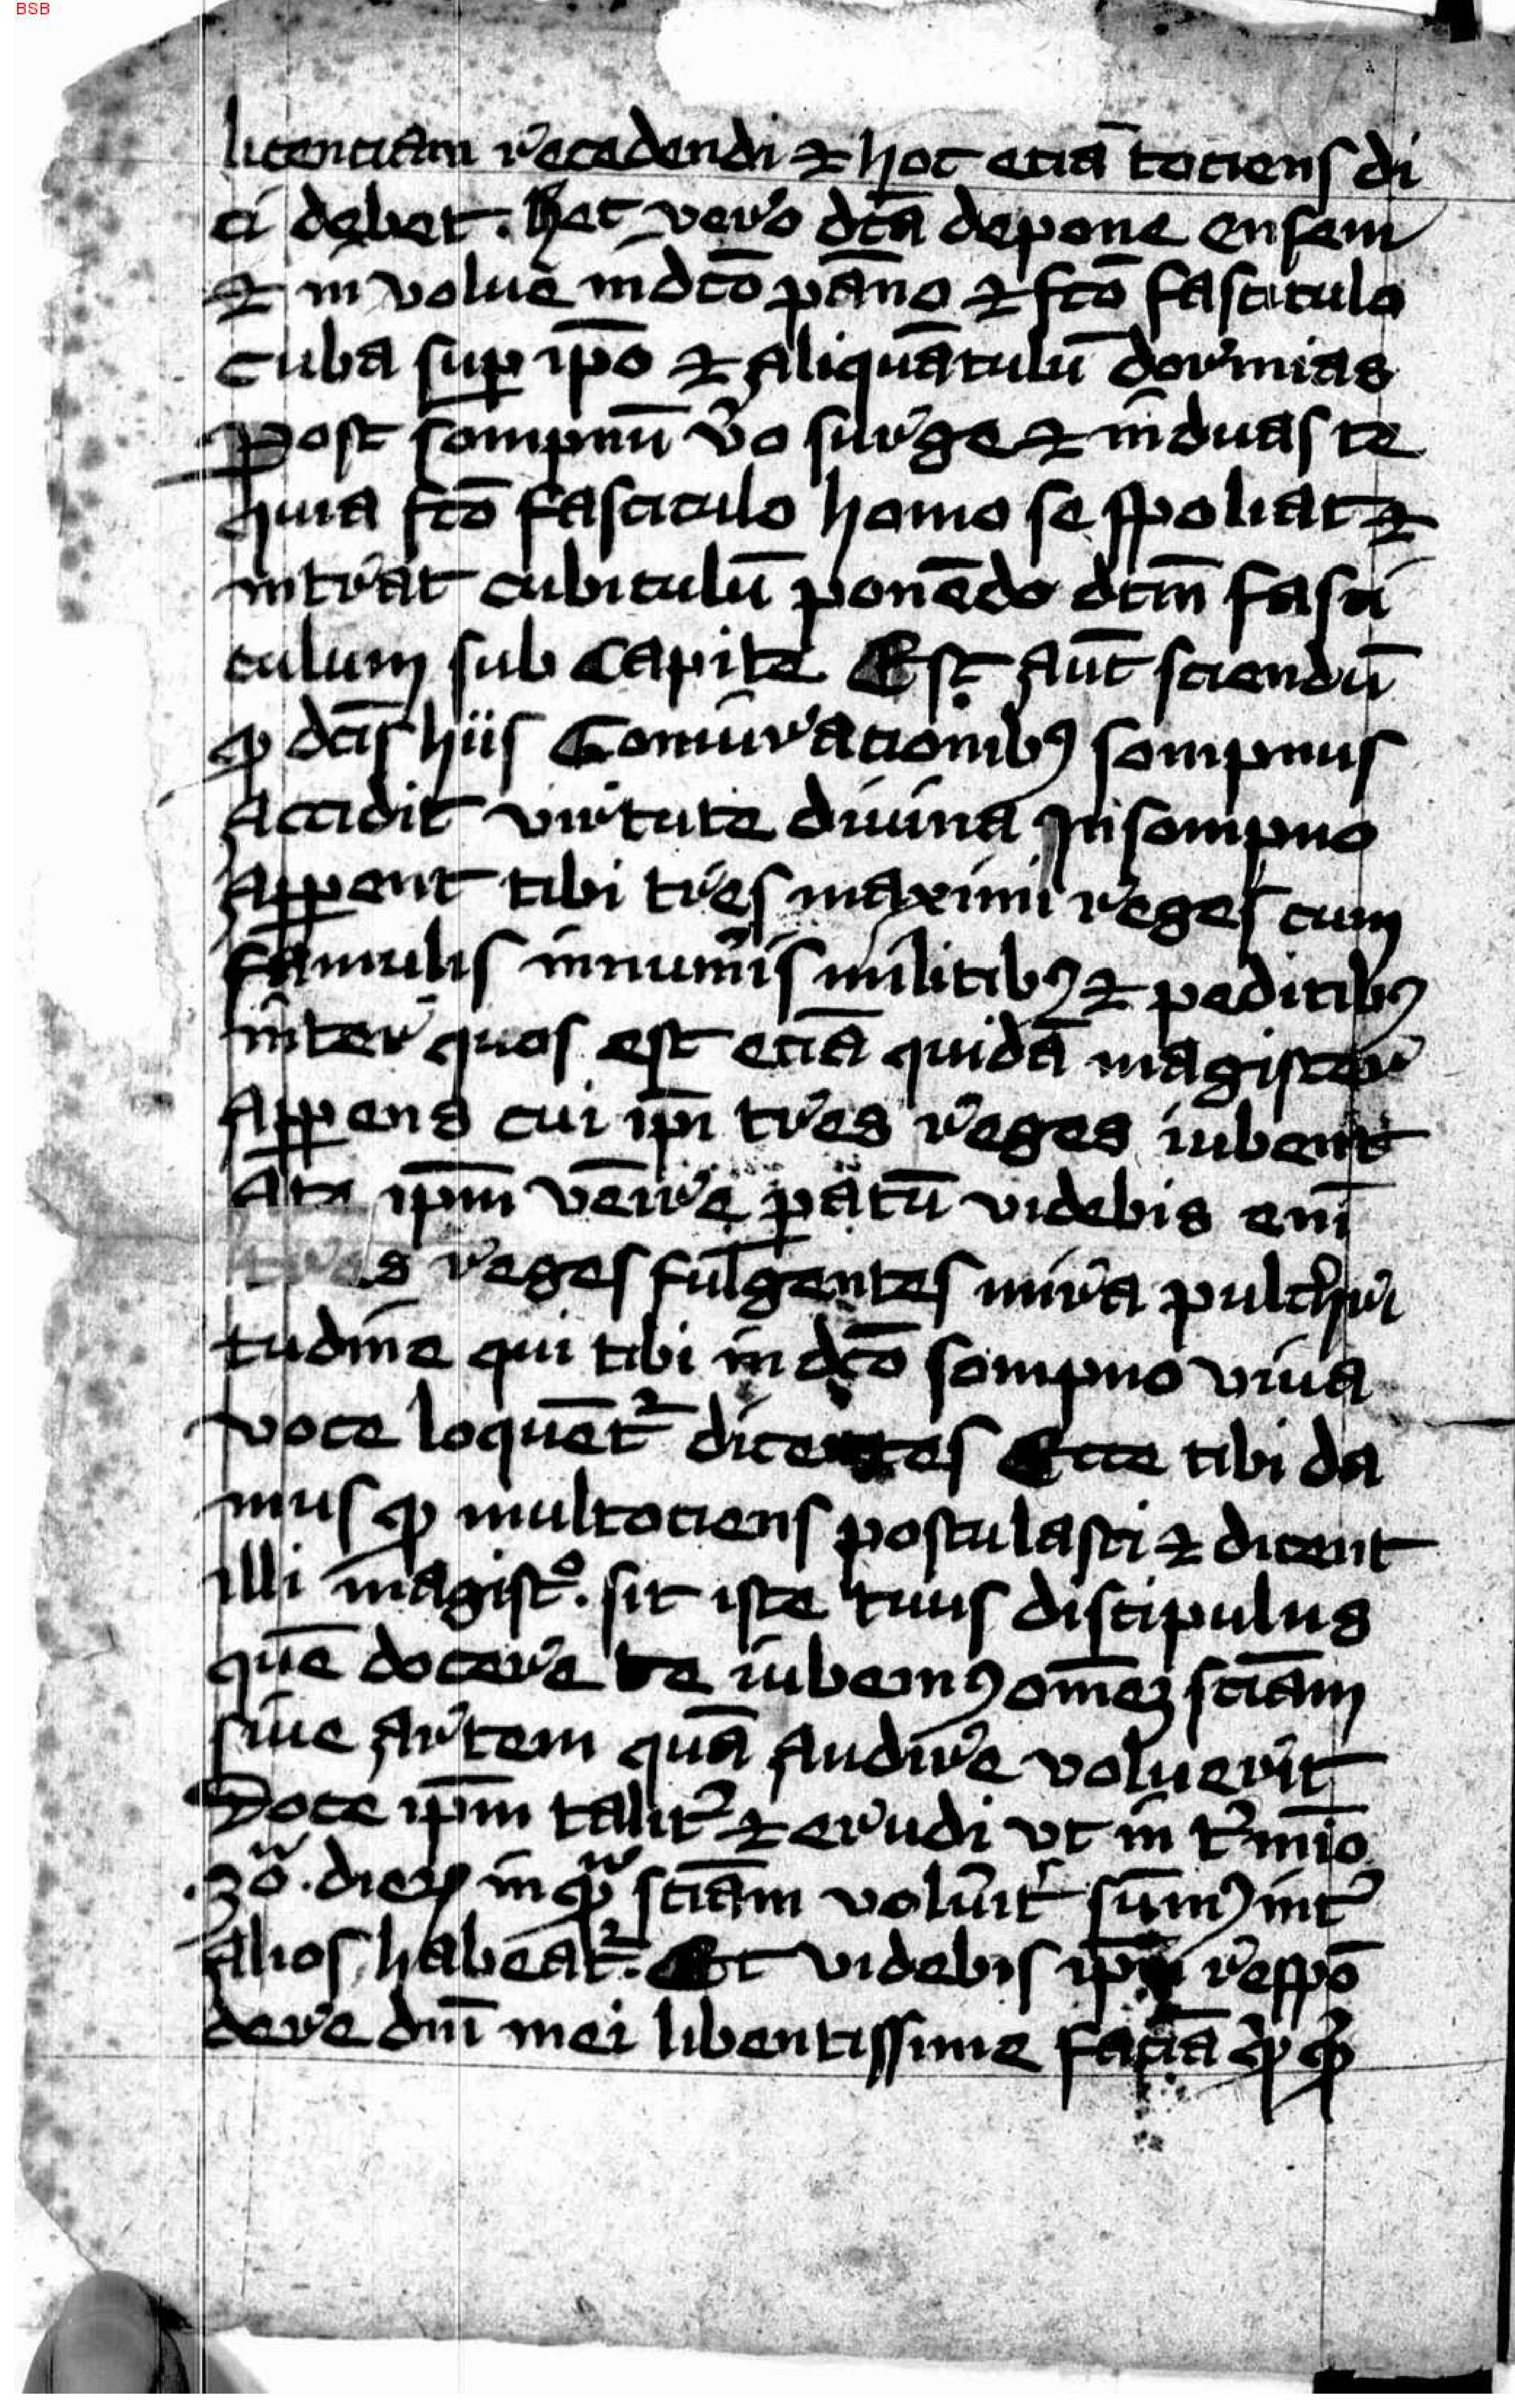 BSB
licenciam recedendi ⁊ hoc eciā tociens di
ci debet . Hec vero dc̄a depone ensem
⁊ in volue in dc̄o pāno ⁊ fc̄o fasciculo
cuba suꝑ ip̄o ⁊ aliquātulū dormias
Post sompnū v̄o surge ⁊ induas te
quia fc̄o fasciculo homo se spoliat ⁊
intrat cubiculū ponēdo dc̄m fasci
culum sub capite Est aūt sciendū
ꝙ dc̄is hiis Coniuracionibꝰ sompnus
accidit virtute diuina In sompno
Aꝑꝑent tibi tres maximi reges cum
famulis innum̄is militibꝰ ⁊ peditibꝰ
inter quos est eciā quidā magister
Aꝑꝑens cui ip̄i tres reges iubent
A te ip̄m venire ꝑatū videbis eni̅
tres reges fulgentes mira pulchri
tudine qui tibi in dc̄o sompno viua
voce loquēt᷑ dicentes Ecce tibi da
mus ꝙ multociens postulasti ⁊ dicent
illi magistͦ . sit iste tuus discipulus
quē docere te iubemꝰ om̄eꝫ sciām
siue artem quā audire voluerit
Doce ip̄m talit᷑ ⁊ erudi vt in t᷑mīo
.30. dieꝝ in q̄ sciām volu᷑it sūmꝰ int᷑
alios habeat᷑ . Et videbis ip̄m respō
dere dn̄i mei libentissime faciā